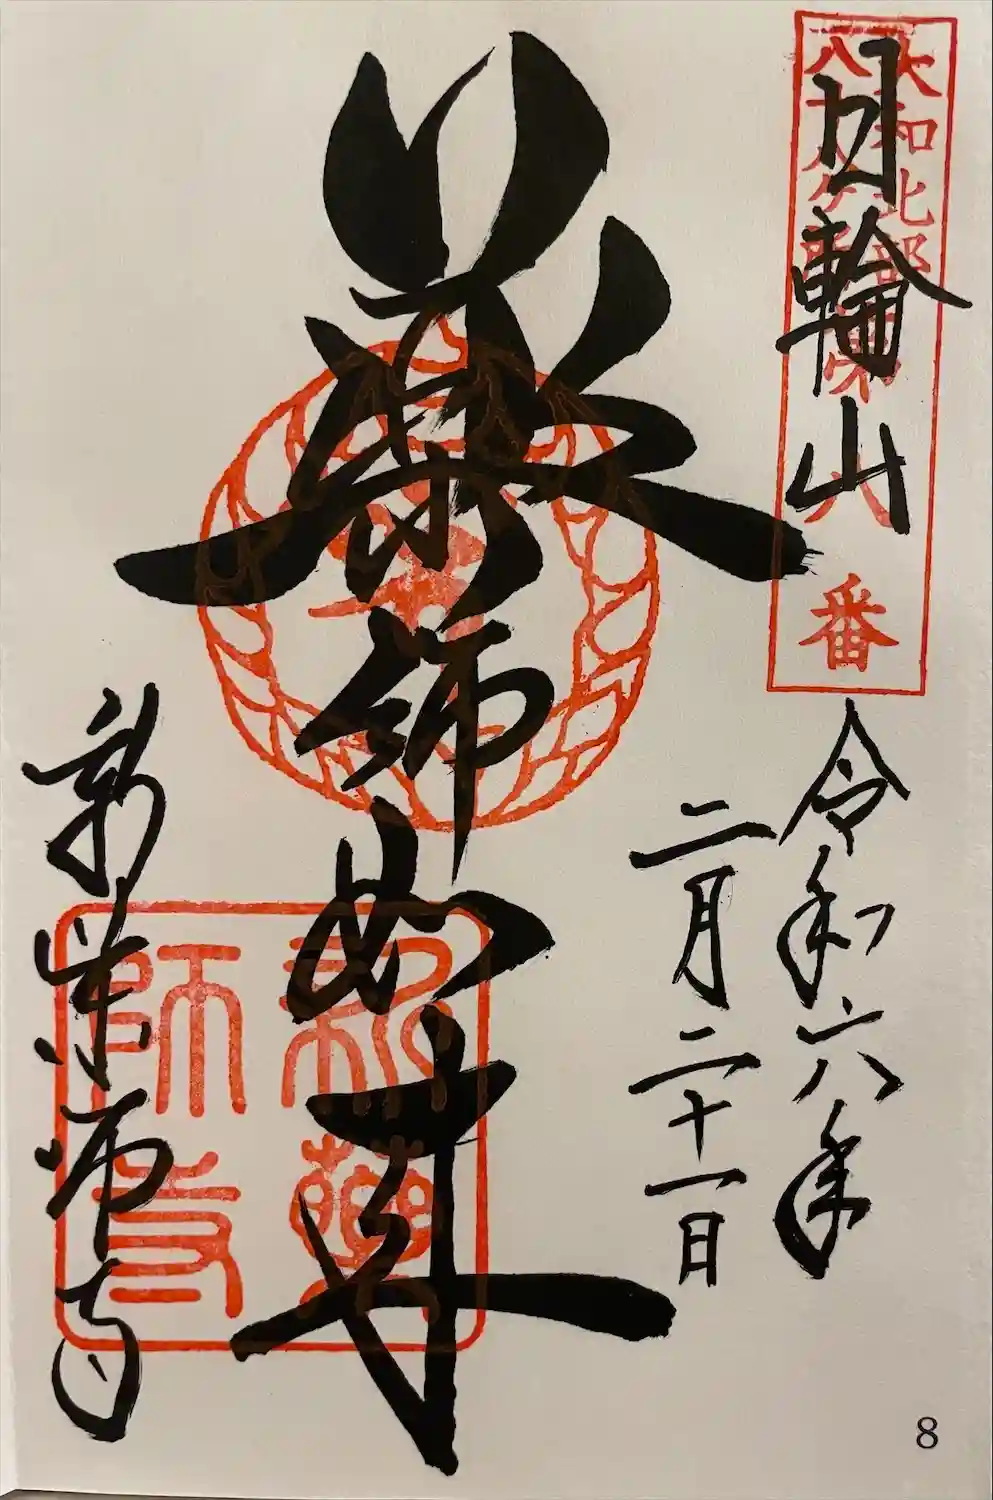 大和北部
八十八ヶ所第
八番
日輪山
令和六年
二月二十一日
薬師如来
新薬師寺
新薬
師寺
8